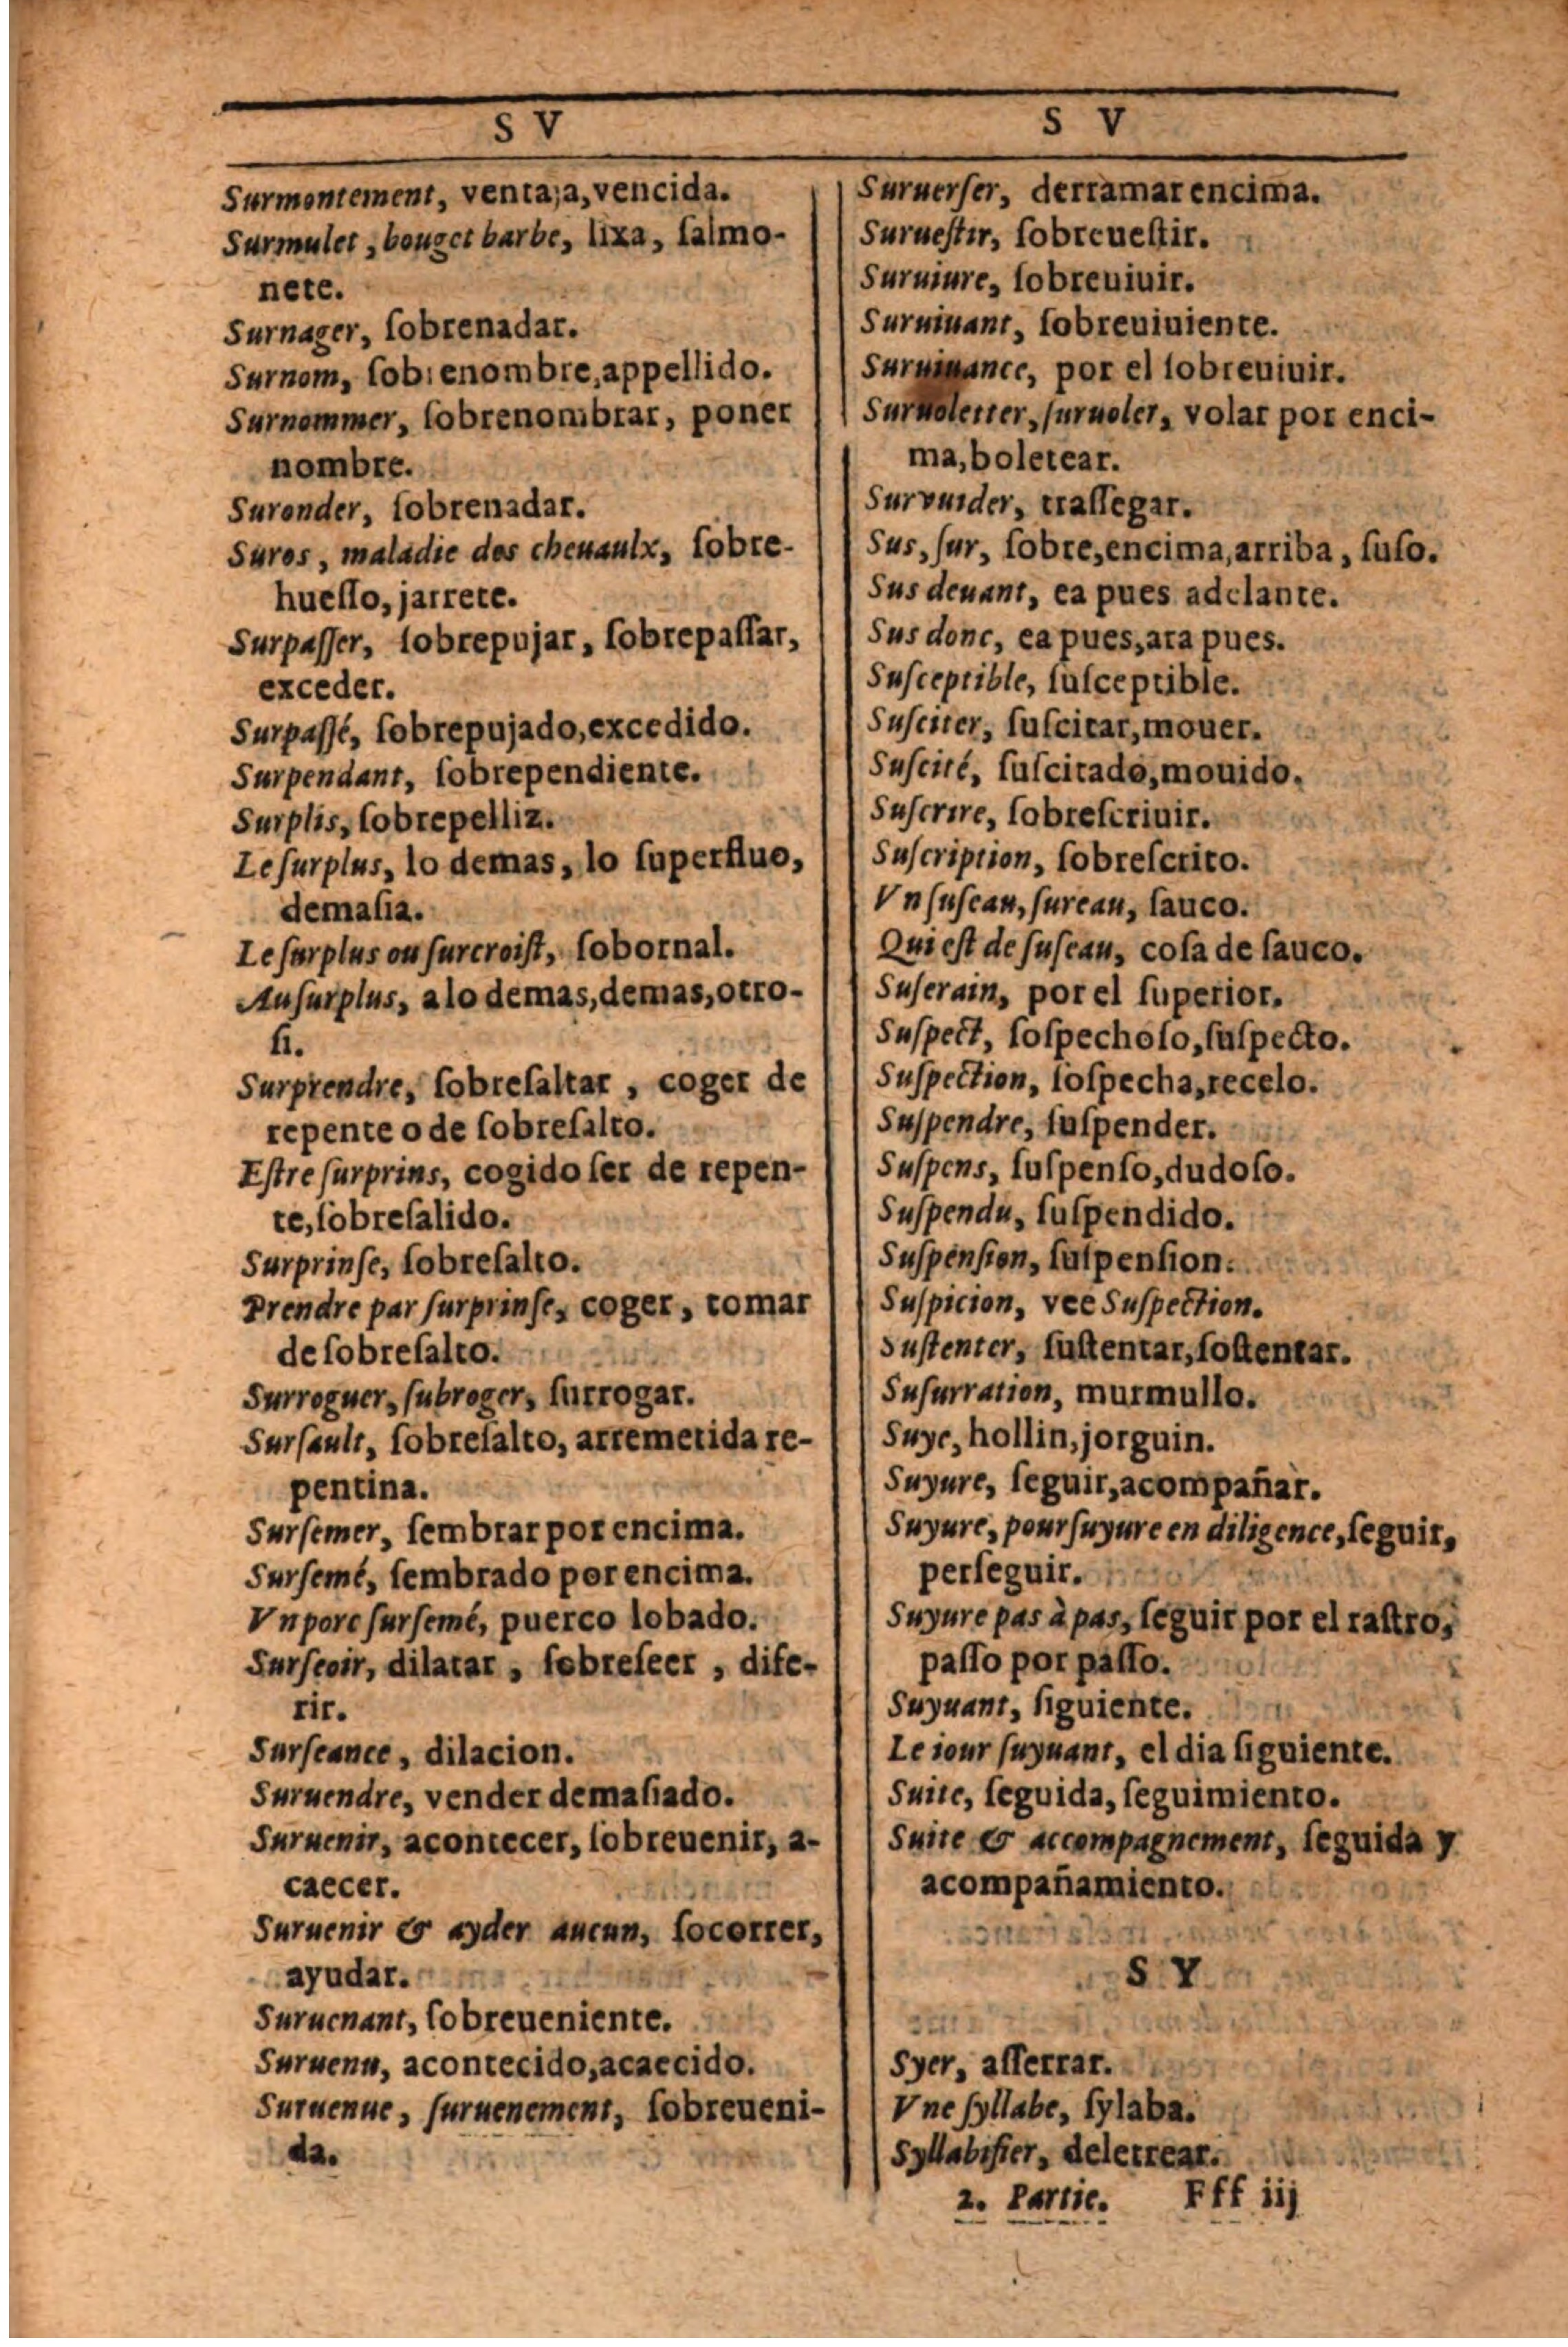 S V
Surmontement, ventaja, vencida.
Surmulet, bouget barbe, lixa, ſalmo-
nete.
Surnager, ſobrenadar.
Surnom, ſobrenombre, appellido.
Surnommer, ſobrenombrar, poner
nombre.
Suronder, ſobrenadar.
Suros, maladie des cheuaulx, ſobre-
hueſſo, jarrete.
Surpaſſer, ſobrepujar, ſobrepaſſar,
exceder.
Surpaſſé, ſobrepujado, excedido.
Surpendant, ſobrependiente.
Surplis, ſobrepelliz.
Le ſurplus, lo demas, lo ſuperfluo,
demaſia.
Le ſurplus ou ſurcroiſt, ſobornal.
Au ſurplus, a lo demas, demas, otro-
ſi.
Surprendre, ſobreſaltar, coger de
repente o de ſobreſalto.
Eſtre ſurprins, cogido ſer de repen-
te, ſobreſalido.
Surprinſe, ſobreſalto.
Prendre par ſurprinſe, coger, tomar
de ſobreſalto.
Surroguer, ſubroger, ſurrogar.
Surſault, ſobreſalto, arremetida re-
pentina.
Surſemer, ſembrar por encima.
Surſemé, ſembrado por encima.
Vn porc ſurſemé, puerco lobado.
Surſeoir, dilatar, ſobreſeer, dife-
rir.
Surſeance, dilacion.
Suruendre, vender demaſiado.
Suruenir, acontecer, ſobreuenir, a-
caecer.
Suruenir & ayder aucun, ſocorrer,
ayudar.
Suruenant, ſobreueniente.
Suruenu, acontecido, acaecido.
Suruenue, ſuruenement, ſobreueni-
da.
S V
Suruerſer, derramar encima.
Surueſtir, ſobreueſtir.
Suruiure, ſobreuiuir.
Suruiuant, ſobreuiuiente.
Suruiuance, por el ſobreuiuir.
Suruoletter, ſuruoler, volar por enci-
ma, boletear.
Survuider, traſſegar.
Sus, ſur, ſobre, encima, arriba, ſuſo.
Sus deuant, ea pues adelante.
Sus donc, ea pues, ara pues.
Suſceptible, ſuſceptible.
Suſciter, ſuſcitar, mouer.
Suſcité, ſuſcitado, mouido.
Suſcrire, ſobreſcriuir.
Suſcription, ſobreſcrito.
Vn ſuſeau, ſureau, ſauco.
Qui eſt de ſuſeau, coſa de ſauco.
Suſerain, por el ſuperior.
Suſpect, ſoſpechoſo, ſuſpecto.
Suſpection, ſoſpecha, recelo.
Suſpendre, ſuſpender.
Suſpens, ſuſpenſo, dudoſo.
Suſpendu, ſuſpendido.
Suſpenſion, ſuſpenſion.
Suſpicion, vee Suſpection.
Suſtenter, ſuſtentar, ſoſtentar.
Suſurration, murmullo.
Suye, hollin, jorguin.
Suyure, ſeguir, acompañar.
Suyure, pourſuyure en diligence, ſeguir,
perſeguir.
Suyure pas à pas, ſeguir por el raſtro,
paſſo por paſſo.
Suyuant, ſiguiente.
Le iour ſuyuant, el dia ſiguiente.
Suite, ſeguida, ſeguimiento.
Suite & accompagnement, ſeguida y
acompañamiento.
S Y
Syer, aſſerrar.
Vne ſyllabe, ſylaba.
Syllabiſier, deletrear.
2. Partie. Fff iij